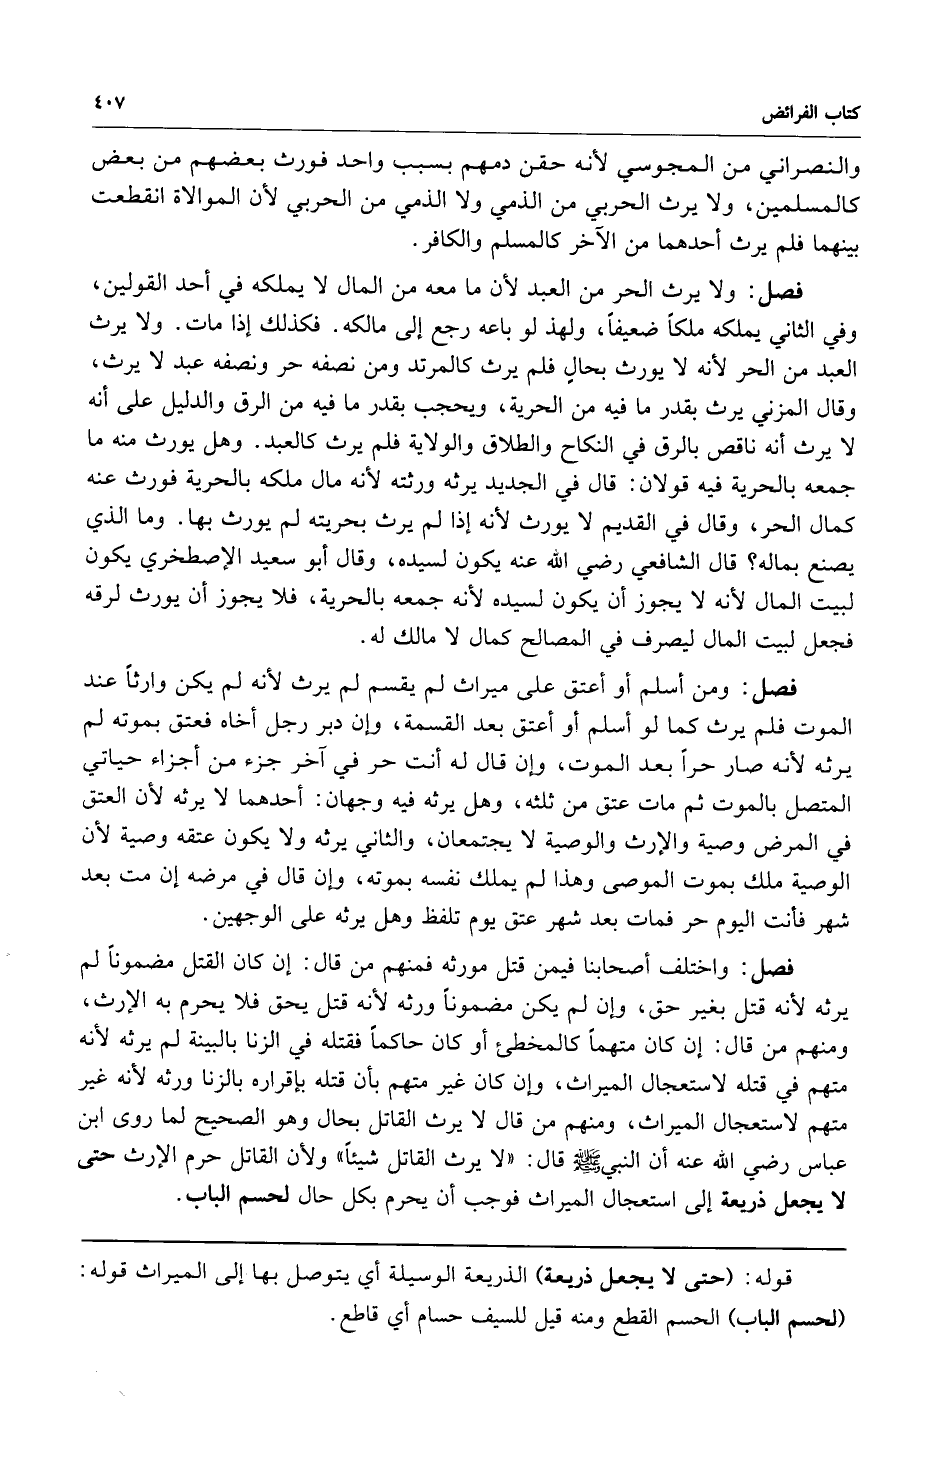 ٤٠٧
كتاب الفرائض
والنصراني من المجوسي لأنه حقن دمهم بسبب واحد فورث بعضهم من بعض
كالمسلمين، ولا يرث الحربي من الذمي ولا الذمي من الحربي لأن الموالاة انقطعت
بينهما فلم يرث أحدهما من الآخر كالمسلم والكافر.
فصل: ولا يرث الحر من العبد لأن ما معه من المال لا يملكه في أحد القولين،
وفي الثاني يملكه ملكاً ضعيفاً، ولهذ لو باعه رجع إلى مالكه. فكذلك إذا مات. ولا يرث
العبد من الحر لأنه لا يورث بحالٍ فلم يرث كالمرتد ومن نصفه حر ونصفه عبد لا يرث،
وقال المزني يرث بقدر ما فيه من الحرية، ويحجب بقدر ما فيه من الرق والدليل على أنه
لا يرث أنه ناقص بالرق في النكاح والطلاق والولاية فلم يرث كالعبد. وهل يورث منه ما
جمعه بالحرية فيه قولان: قال في الجديد يرثه ورثته لأنه مال ملكه بالحرية فورث عنه
كمال الحر، وقال في القديم لا يورث لأنه إذا لم يرث بحريته لم يورث بها. وما الذي
يصنع بماله؟ قال الشافعي رضي الله عنه يكون لسيده، وقال أبو سعيد الإصطخري يكون
لبيت المال لأنه لا يجوز أن يكون لسيده لأنه جمعه بالحرية، فلا يجوز أن يورث لرقه
فجعل لبيت المال ليصرف في المصالح كمال لا مالك له.
فصل: ومن أسلم أو أعتق على ميراث لم يقسم لم يرث لأنه لم يكن وارثاً عند
الموت فلم يرث كما لو أسلم أو أعتق بعد القسمة، وإن دبر رجل أخاه فعتق بموته لم
يرثه لأنه صار حراً بعد الموت، وإن قال له أنت حر في آخر جزء من أجزاء حياتي
المتصل بالموت ثم مات عتق من ثلثه، وهل يرثه فيه وجهان: أحدهما لا يرثه لأن العتق
في المرض وصية والإرث والوصية لا يجتمعان، والثاني يرثه ولا يكون عتقه وصية لأن
الوصية ملك بموت الموصى وهذا لم يملك نفسه بموته، وإن قال في مرضه إن مت بعد
شهر فأنت اليوم حر فمات بعد شهر عتق يوم تلفظ وهل يرثه على الوجهين.
فصل: واختلف أصحابنا فيمن قتل مورثه فمنهم من قال: إن كان القتل مضموناً لم
يرثه لأنه قتل بغير حق، وإن لم يكن مضموناً ورثه لأنه قتل يحق فلا يحرم به الإرث،
ومنهم من قال: إن كان متهماً كالمخطئ أو كان حاكماً فقتله في الزنا بالبينة لم يرثه لأنه
متهم في قتله لاستعجال الميراث، وإن كان غير متهم بأن قتله بإقراره بالزنا ورثه لأنه غير
متهم لاستعجال الميراث، ومنهم من قال لا يرث القاتل بحال وهو الصحيح لما روى ابن
عباس رضي الله عنه أن النبي ﷺ قال: «لا يرث القاتل شيئاً» ولأن القاتل حرم الإرث حتى
لا يجعل ذريعة إلى استعجال الميراث فوجب أن يحرم بكل حال لحسم الباب.
قوله: (حتى لا يجعل ذريعة) الذريعة الوسيلة أي يتوصل بها إلى الميراث قوله:
(لحسم الباب) الحسم القطع ومنه قيل للسيف حسام أي قاطع.